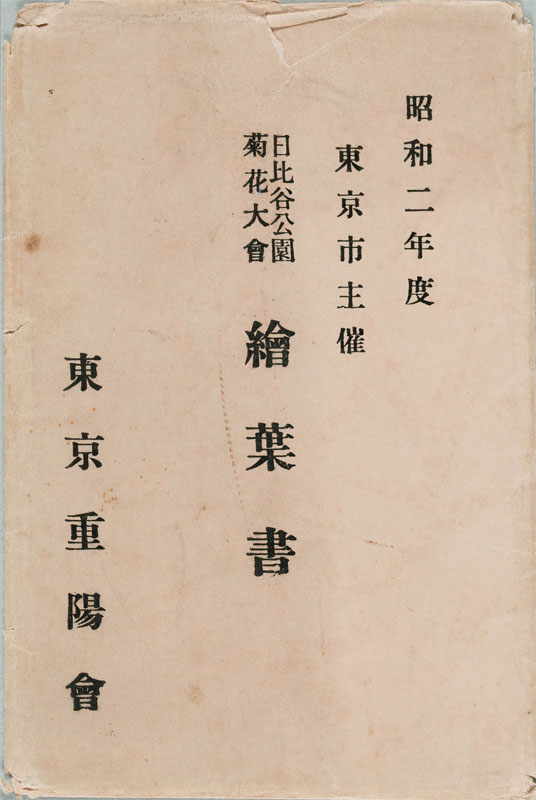 昭和二年度
東京市主催
日比谷公園
菊花大會
繪葉書
東京重陽會